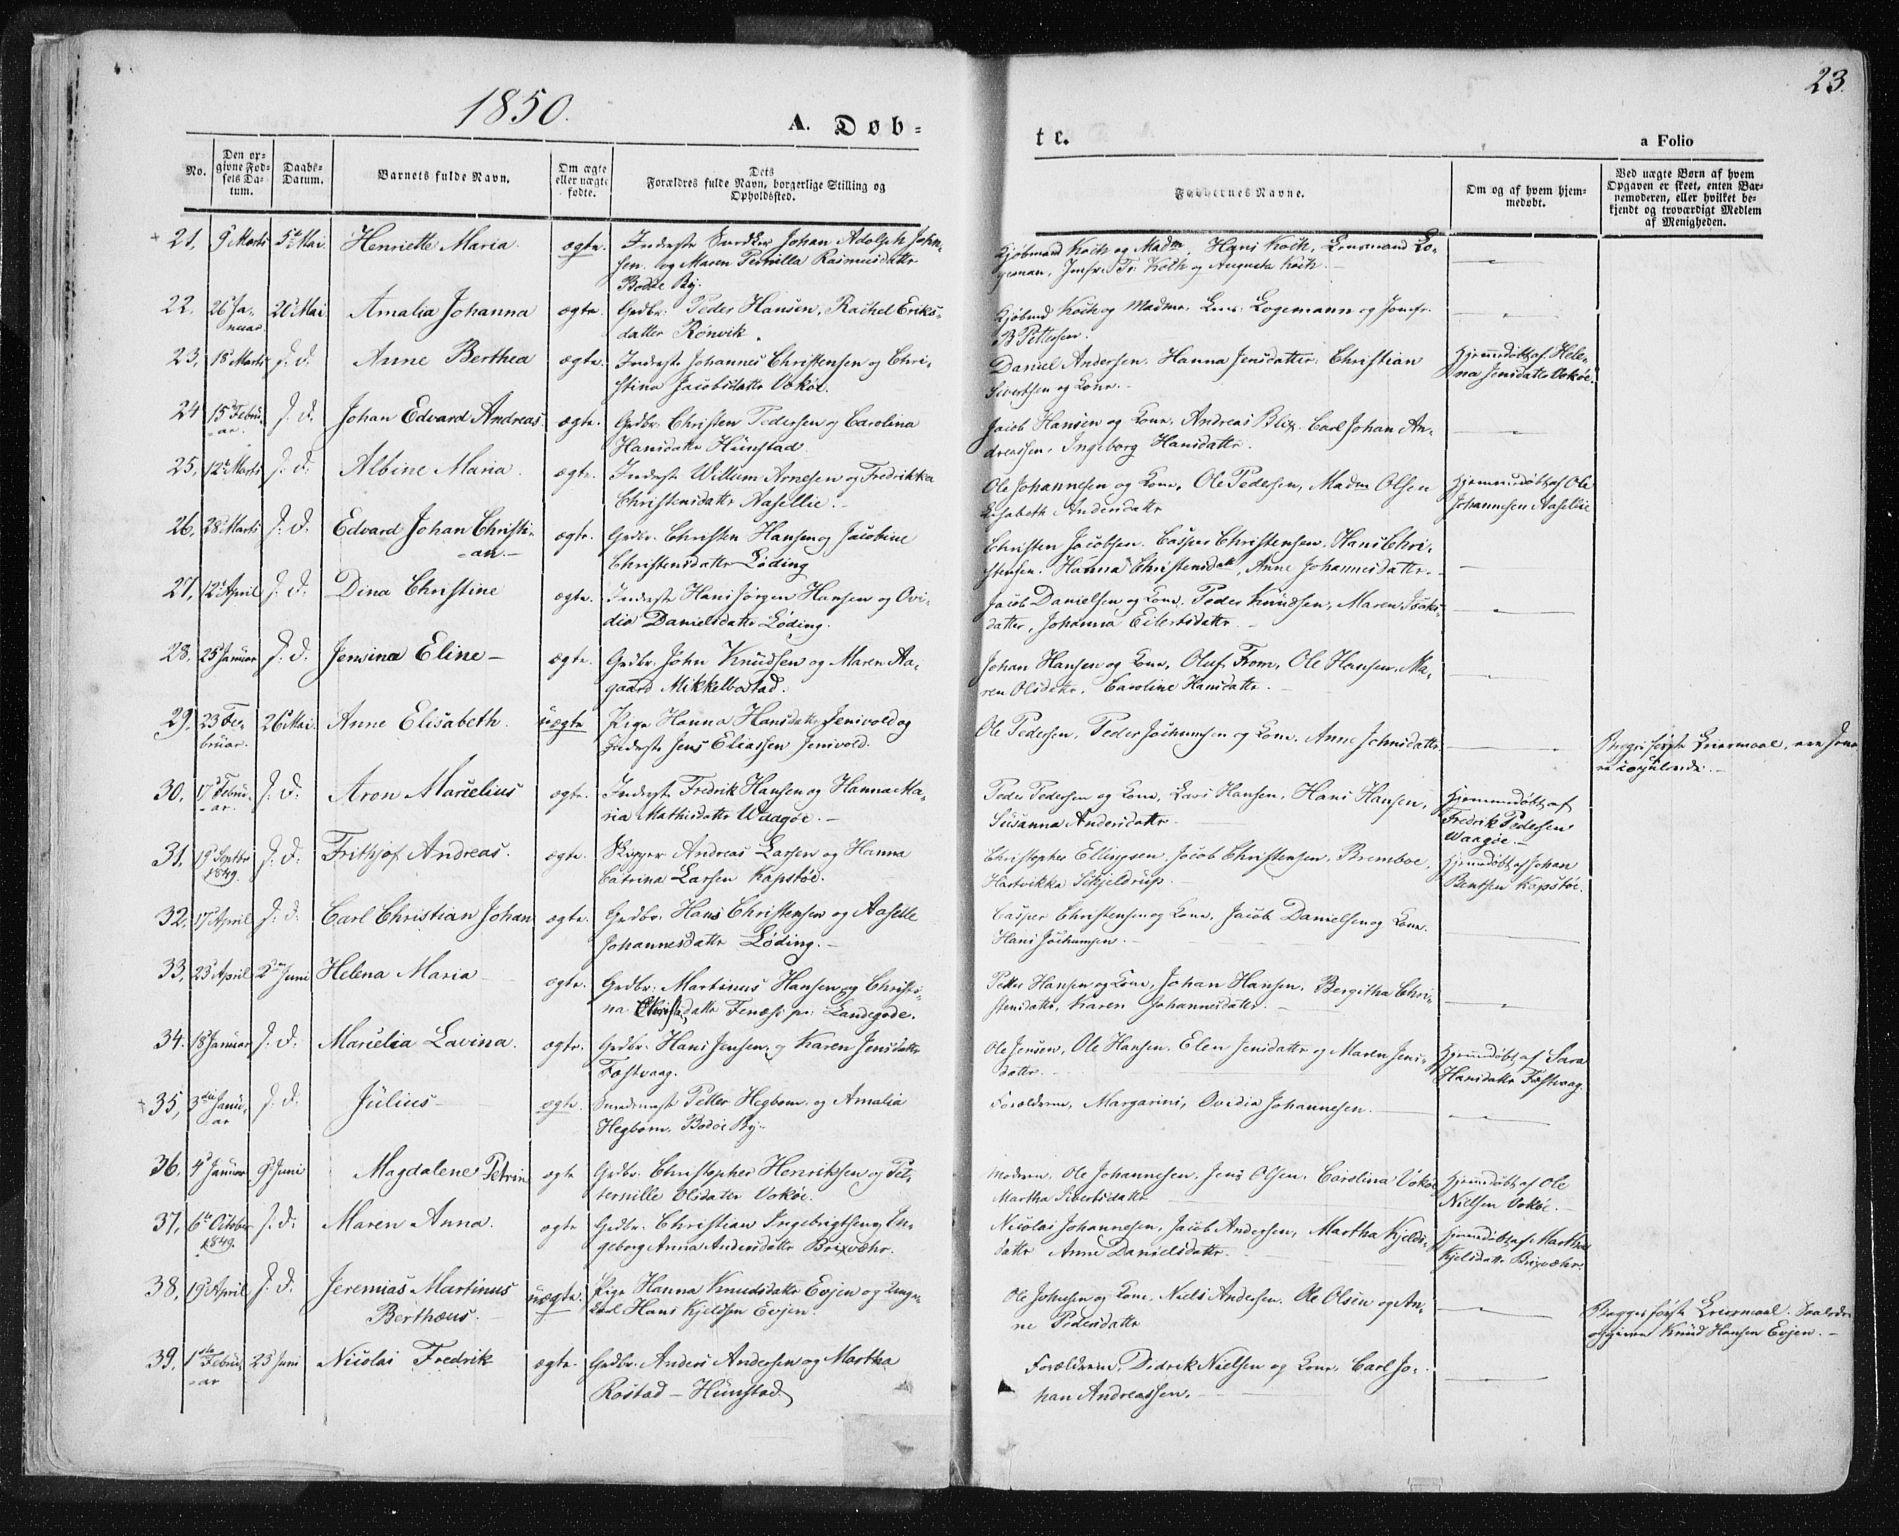 1850.
23.
A. Døb-
te.
a Folio
No.
Den op-
givne Fød-
sels Da-
tum.
Daabs-
Datum.
Barnets fulde Navn.
Om ægte
eller uægte
fødte.
Dets
Forældres fulde Navn, borgerlige Stilling og
Opholdssted.
Faddernes Navne.
Om og af hvem hjem-
medøbt.
Ved uægte Børn af hvem
Opgaven er skeet, enten Bar-
nemoderen, eller hvilket be-
kjendt og troværdigt Medlem
af Menigheden.
21. 9 Marts 5te Mai Henriette Maria. ægte. Inderste Johan Adolph John-
sen. og Maren Pernilla Rasmusdatter
Bodøe By.
Kjøbmand Koch og Madm. Hans Koch,
Jmfr. Fr. Koch og Augusta Koch.
22. 26 Ja-
nuar. 20 Mai Amalia Johanna ægte. Grdbr. Peder Hansen, Rachel Eriks-
datter Rønvik.
Koch og Madme. Logemann og Jomfr.
B Pettersen.
23. 18 Marts s. d. Anne Berthea ægte. Inderste Johannes Christensen og Chri-
stina Jacobsdatter Vokøe.
Daniel Andersen. Hanna Jensdatter. Christian
Sivertsen og Kone.
Hjemmedøbt af Hele-
na Jensdatter Vokøe.
24 15 Febru-
ar. s. d. Johan Edvard Andreas. ægte. Grdbr. Christen Pedersen og Carolina
Hansdatter Hunstad.
Jacob Hansen og Kone. Andreas Blix. Carl Johan An-
dreassen, Ingeborg Hansdatter.
25. 12te Marts s. d. Albine Maria. ægte. Inderste Willum Arnesen og Fredrikka
Christensdatter Aasellie.
Ole Johannesen og Kone. Ole Pedersen, Madm Olsen
Elisabeth Andersdatter
Hjemmedøbt af Ole
Johannesen Aasellie
26. 28 Marts s. d. Edvard Johan Christi-
an. ægte. Grdbr. Christen Hansen og Jacobine
Christensdatter Løding
Christen Jacobsen. Casper Christensen. Hans Chri-
stensen. Hanna Christensdatt, Anne Johannesdatter.
27. 12te April s. d. Dina Christine ægte. Inderste Hans Jørgen Hansen og Ovi-
dia Danielsdatter Løding.
Jacob Danielsen og Kone. Peder Knudsen, Maren Isaks-
datter, Johanna Eilertsdatter.
28. 25 Januar s. d. Jensina Eline ægte. Grdbr. John Knudsen og Maren Aa-
gaard Mikkelbostad.
Johan Hansen og Kone, Oluf From, Ole Hansen, Ma-
ren Olsdatter. Caroline Hansdatter.
29. 23 Fe-
bruar. 26 Mai. Anne Elisabeth. uægte Pige Hanna Hansdatter Jenivold og
Inderste Jens Eliassen Jenivold.
Ole Pedersen, Peder Jochumsen og Kone. Anne Johnsdatter.
Begges første Leiermaal,
30. 17 Febru-
ar. s. d. Aron Marcelius ægte. Inderste Fredrik Hansen og Hanna Ma-
ria Mathisdatter Waagøe.
Peder Pedersen og Kone, Lars Hansen, Hans Hansen,
Susanna Andersdatter.
Hjemmedøbt af
Fredrik Pedersen
Waagøe.
31. 19 Septbr
1849. s. d. Frithjof Andreas. ægte. Skipper Andreas Larsen og Hanna
Catrina Larsen Kapstøe.
Christopher Ellingsen. Jacob Christensen, Bremboe,
Hartvikka Schjeldrup.
Hjemmedøbt af Johan
Bentsen Kapstøe.
32. 17 April s. d. Carl Christian Johan ægte. Grdbr. Hans Christensen og Aaselle
Johannesdatter Løding.
Casper Christensen og Kone, Jacob Danielsen og Kone.
Hans Jochumsen.
33. 23 April 2den Juni Helena Maria ægte. Grdbr. Martinus Hansen og Christi-
na datter Fenæs pr. Landegode.
Petter Hansen og Kone, Johan Hansen. Bergitha Chri-
stensdatter, Karen Johannesdatter.
34. 18 Januar s. d. Marcelia Lavina. ægte. Grdbr. Hans Jensen, og Karen Jensdatter
Fastvaag.
Ole Jensen, Ole Hansen. Elen Jensdatter og Maren Jens-
datter.
Hjemmedøbt af Sara
Hansdatter Fastvaag.
35, 3die Janu-
ar s. d. Julius ægte. Petter Hegbom. og Amalia
Hegbom. Bodøe By.
Forældrene, Margarini, Ovidia Johannesen.
36. 4 Januar 9 Juni Magdalene Petrine ægte Grdbr. Christopher Henriksen og Pet-
ternille Olsdatter Vokøe.
Moderen. Ole Johannesen. Jens Olsen. Carolina Vokøe
Martha Sibertsdatter
Hjemmedøbt af Ole
Nielsen Vokøe.
37. 6te October
1849. s. d. Maren Anna. ægte Grdbr. Christian Ingebrigtsen og In-
geborg Anna Andersdatter Brixvær.
Nicolai Johannesen, Jacob Andersen, Martha Kjelds-
datter Anne Danielsdatter.
Hjemmedøbt af Martha
Kjelsdatter Brixvæhr.
38. 19 April s. d. Jeremias Martinus
Berthæus. uægte. Pige Hanna Knudsdatter Evjen og Unge-
karl Hans Kjeldsen Evjen.
Ole Johnsen og Kone, Niels Andersen. Ole Olsen og An-
ne Pedersdatter
Begges første Leiermaal.
Knud Hansen Evjen.
39. 1ste Febru-
ar 23 Juni Nicolai Fredrik ægte. Grdbr. Anders Andersen og Martha
Rostad - Hunstad
Forældrene, Didrik Nielsen og Kone, Carl Jo-
han Andreassen.